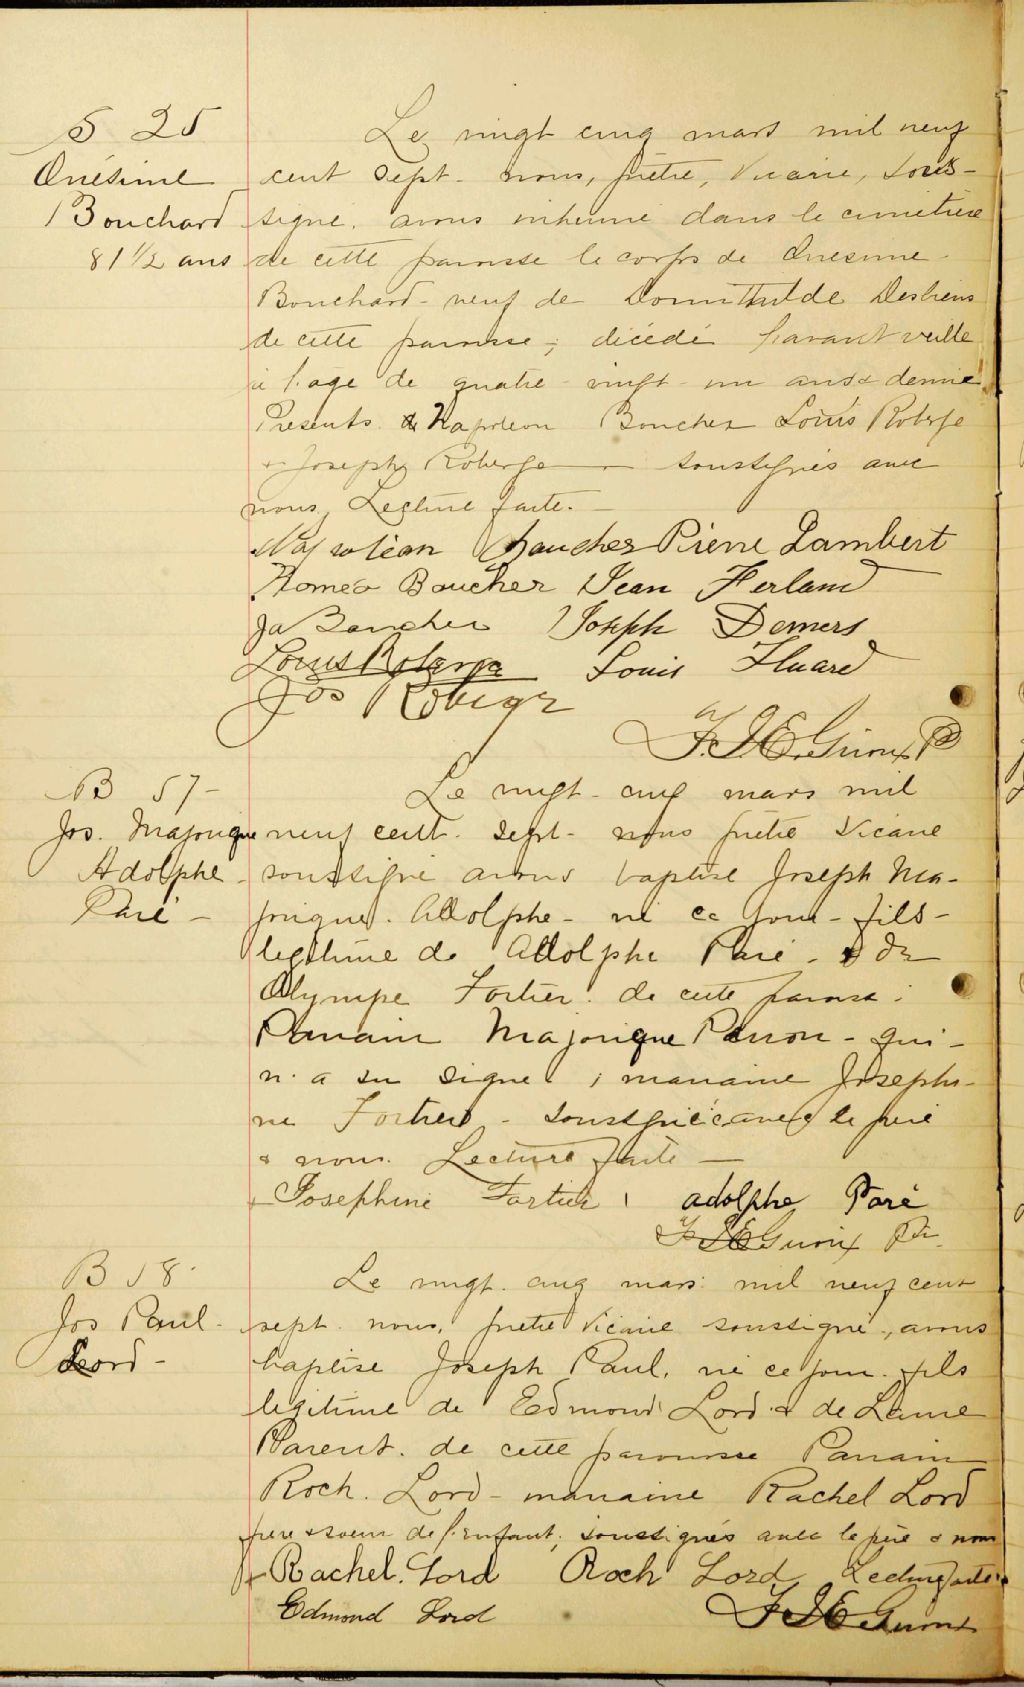 S 25
Onésime
Bouchard
81 1/2 ans
Le vingt cinq mars mil neuf
cent sept. nous, prêtre, vicaire, sous-
signé. avons inhumé dans le cimetière
de cette paroisse le corps de Onésime
Bouchard - veuf de Domithilde Desbiens
de cette paroisse, décédé l'avant veille
à l'age de quatre-vingt-un ans & demie
Présents. Napoléon Boucher Louis Roberge
& Joseph Roberge soussignés avec
nous, Lecture faite.
Napoléon Boucher Pierre Lambert
Roméo Boucher Jean Ferland
Ja Boucher Joseph Demers
Louis Roberge Louis Huard
Jos Roberge
F.J.E. Giroux P
B 57 -
Jos. Majorique
Adolphe
Paré -
Le vingt-cinq mars mil
neuf cent. sept - nous prêtre vicaire
soussigné avons baptisé Joseph Ma-
jorique. Adolphe - né ce jour - fils -
legitime de Adolphe Paré - & de
Olympe Fortier. de cette paroisse;
Parrain Majorique Perron - qui -
n'a su signé; marraine Josephi-
ne Fortier - soussignée avec le père
& nous. Lecture faite —
Josephine Fortier, adolphe Paré
F J E Giroux Ptr
B 58
Jos Paul -
Lord -
Le vingt. cinq mars mil neuf cent
sept. nous, prêtre vicaire soussigné, avons
baptisé Joseph Paul, né ce jour. fils
legitime de Edmond Lord & de Laura
Parent. de cette paroisse Parrain
Roch. Lord - marraine Rachel Lord
frère & soeur de l'enfant, soussignés avec le père & nous
Rachel. Lord Roch Lord Lecture faite
Edmond Lord F J E Giroux